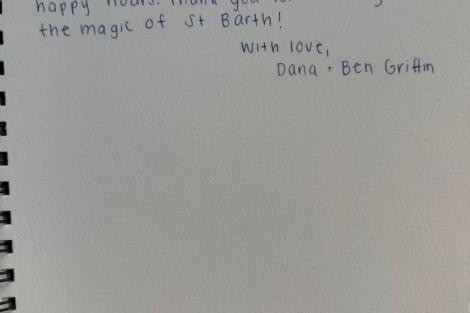 happy hours. Thank you
the magic of St Barth!
with love,
Dana + Ben Griffin